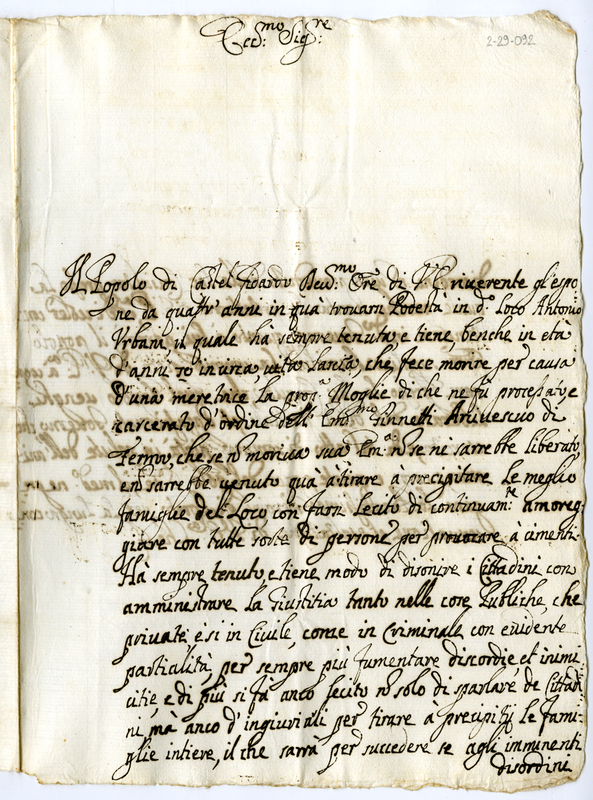 Ecc:mo Sig:re
2-29-092
Il Popolo di Castel fidardo Dev:mo Ore di V: E riverente gl'espo
ne da quattr' anni in quà trovarsi Podestà in d.o Loco Antonio
Urbani il quale hà sempre tenuta e tiene, benche in età
d'anni 70 in circa, vita che fece morire per causa
d'una meretrice la prop.a Moglie di che ne fù processato, e
carcerato d'ordine dell' Em:mo Ginnetti Arcivescvo di
Fermo, che se ñ moriva sua Em:a ñ se ne sarrebbe liberato,
e ñ sarrebbe venuto quà à tirare à precipitare le meglio
famiglie del Loco con farsi lecito di continuam:te amoreg:
giare con tutte sorte di persone per provocare à cimenti
Hà sempre tenuto, e tiene modo di disonire i Cittadini con
amministrare la Giustitia tanto nelle cose Publiche, che
private e si in Civile, come in Criminale con evidente
partialità, per sempre più fumentare discordie, et inimi
citie, e di più si fà anco lecito ñ solo di sparlare de Cittadi
ni, mà anco d'ingiuriali per tirare à precipitij le fami:
glie intiere, il che sarrà per succedere se agli imminenti
disordini